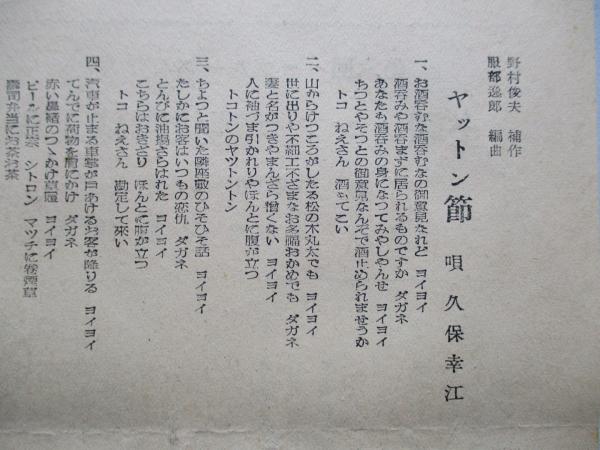 野村俊夫 補作
服部逸郎 編曲
ヤットン節 唄 久保幸江
一、お酒呑むな酒呑むなの御意見なれど ヨイヨイ
酒呑みや酒呑まずに居られるものですか ダガネ
あなたも酒呑みの身になつてみやしやんせ ヨイヨイ
ちつとやそつとの御意見なんぞで酒止められませうか
トコ ねえさん 酒もてこい
二、山からけつころがしたる松の木丸太でも ヨイヨイ
世に出りや不細工不ざまなお多福おかめでも ダガネ
妻と名がつきやまんざら憎くない ヨイヨイ
人に袖づま引かれりやほんとに腹が立つ
トコトンのヤツトントン
三、ちよつと聞いた隣座敷のひそひそ話 ヨイヨイ
たしかにお客はいつもの恋仇 ダガネ
とんびに油揚さらはれた ヨイヨイ
こちらはおきざり ほんとに腹が立つ
トコ ねえさん 勘定して來い
四、汽車が止まる車掌が戸あけるお客が降りる ヨイヨイ
てんでに荷物を肩にかけ ダガネ
赤い鼻緒のつゝかけ草履 ヨイヨイ
ビールに正宗 シトロン マツチに卷煙草
壽司弁当にお茶お茶